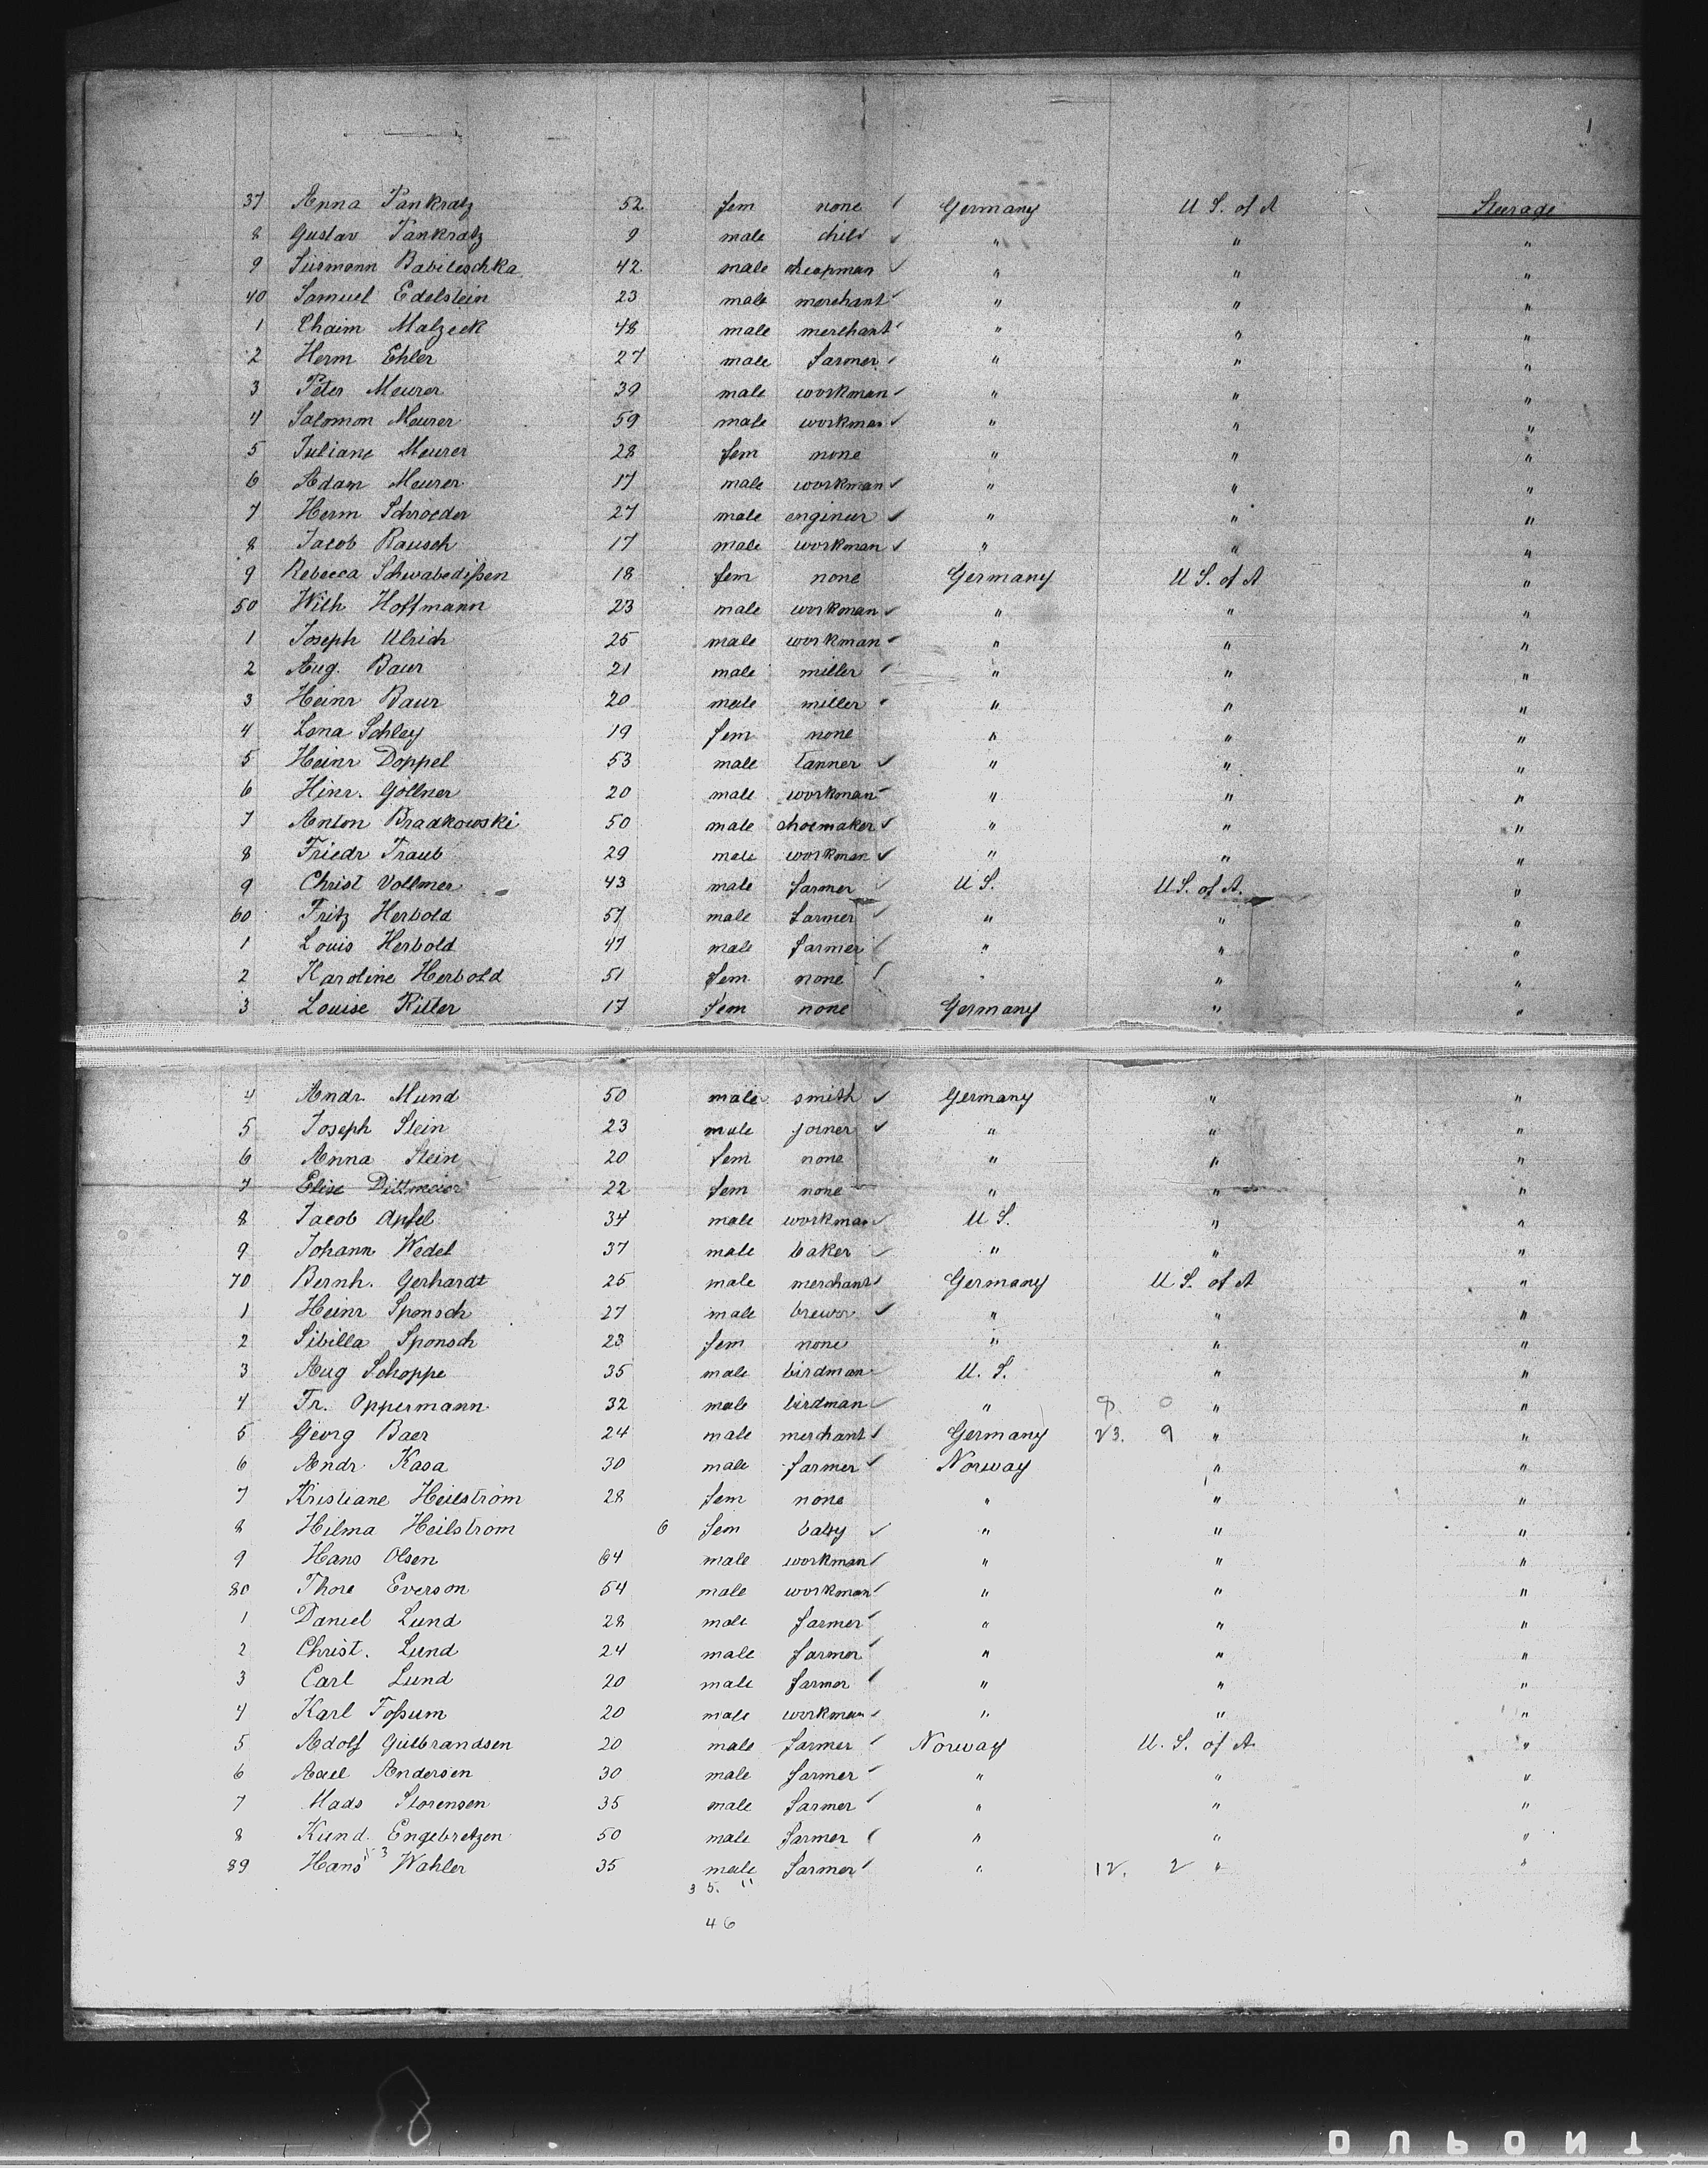 37 Anna Pankratz 52 fem none Germany U S. of A Steerage
8 Gustav Pankratz 9 male child " " "
9 Susmann Babiteschka 42 male chapman " " "
40 Samuel Edelstein 23 male merchant " " "
1 Chaim Malzeck 48 male merchant " " "
2 Herm Ehler 27 male farmer " " "
3 Peter Meurer 39 male workman " " "
4 Salomon Meurer 59 male workman " " "
5 Juliane Meurer 28 fem none " " "
6 Adam Meurer 17 male workman " " "
7 Herm Schroeder 27 male engineur " " "
8 Jacob Rausch 17 male workman " " "
9 Rebecca Schwabedißen 18 fem none Germany U S. of A "
50 Wilh Hoffmann 23 male workman " " "
1 Joseph Ulrich 25 male workman " " "
2 Aug. Baur 21 male miller " " "
3 Heinr Baur 20 male miller " " "
4 Lena Schley 19 fem none " " "
5 Heinr Doppel 53 male tanner " " "
6 Hinr. Göllner 20 male workman " " "
7 Anton Bradkowski 50 male shoemaker " " "
8 Friedr Traub 29 male workman " " "
9 Christ Vollmer 43 male farmer U S. U S. of A. "
60 Fritz Herbold 57 male farmer " " "
1 Louis Herbold 47 male farmer " " "
2 Karoline Herbold 51 fem none " " "
3 Louise Ritter 17 fem none Germany " "
4 Andr. Mund 50 male smith Germany " "
5 Joseph Stein 23 male joiner " " "
6 Anna Stein 20 fem none " " "
7 Elise Dittmeier 22 fem none " " "
8 Jacob Apfel 34 male workman U S. " "
9 Johann Wedel 37 male baker " " "
70 Bernh. Gerhardt 25 male merchant Germany U S. of A "
1 Heinr Sponsch 27 male brewer " " "
2 Sibilla Sponsch 23 fem none " " "
3 Aug Schoppe 35 male birdman U. S. " "
4 Fr. Oppermann 32 male birdman " " "
5 Georg Baer 24 male merchant Germany 23. 9 " "
6 Andr. Kasa 30 male farmer Norway " "
7 Kristiane Heilström 28 fem none " " "
8 Hilma Heilström 6 fem baby " " "
9 Hans Olsen 64 male workman " " "
80 Thore Everson 54 male workman " " "
1 Daniel Lund 28 male farmer " " "
2 Christ. Lund 24 male farmer " " "
3 Carl Lund 20 male farmer " " "
4 Karl Foßum 20 male workman " " "
5 Adolf Gulbrandsen 20 male farmer Norway U. S. of A "
6 Andersen 30 male farmer " " "
7 Mads Storensen 35 male farmer " " "
8 Kund. Engebretzen 50 male farmer " " "
89 Hans Wahler 35 male farmer " 12. 2 " "
3 5. 11
46
DUPONT